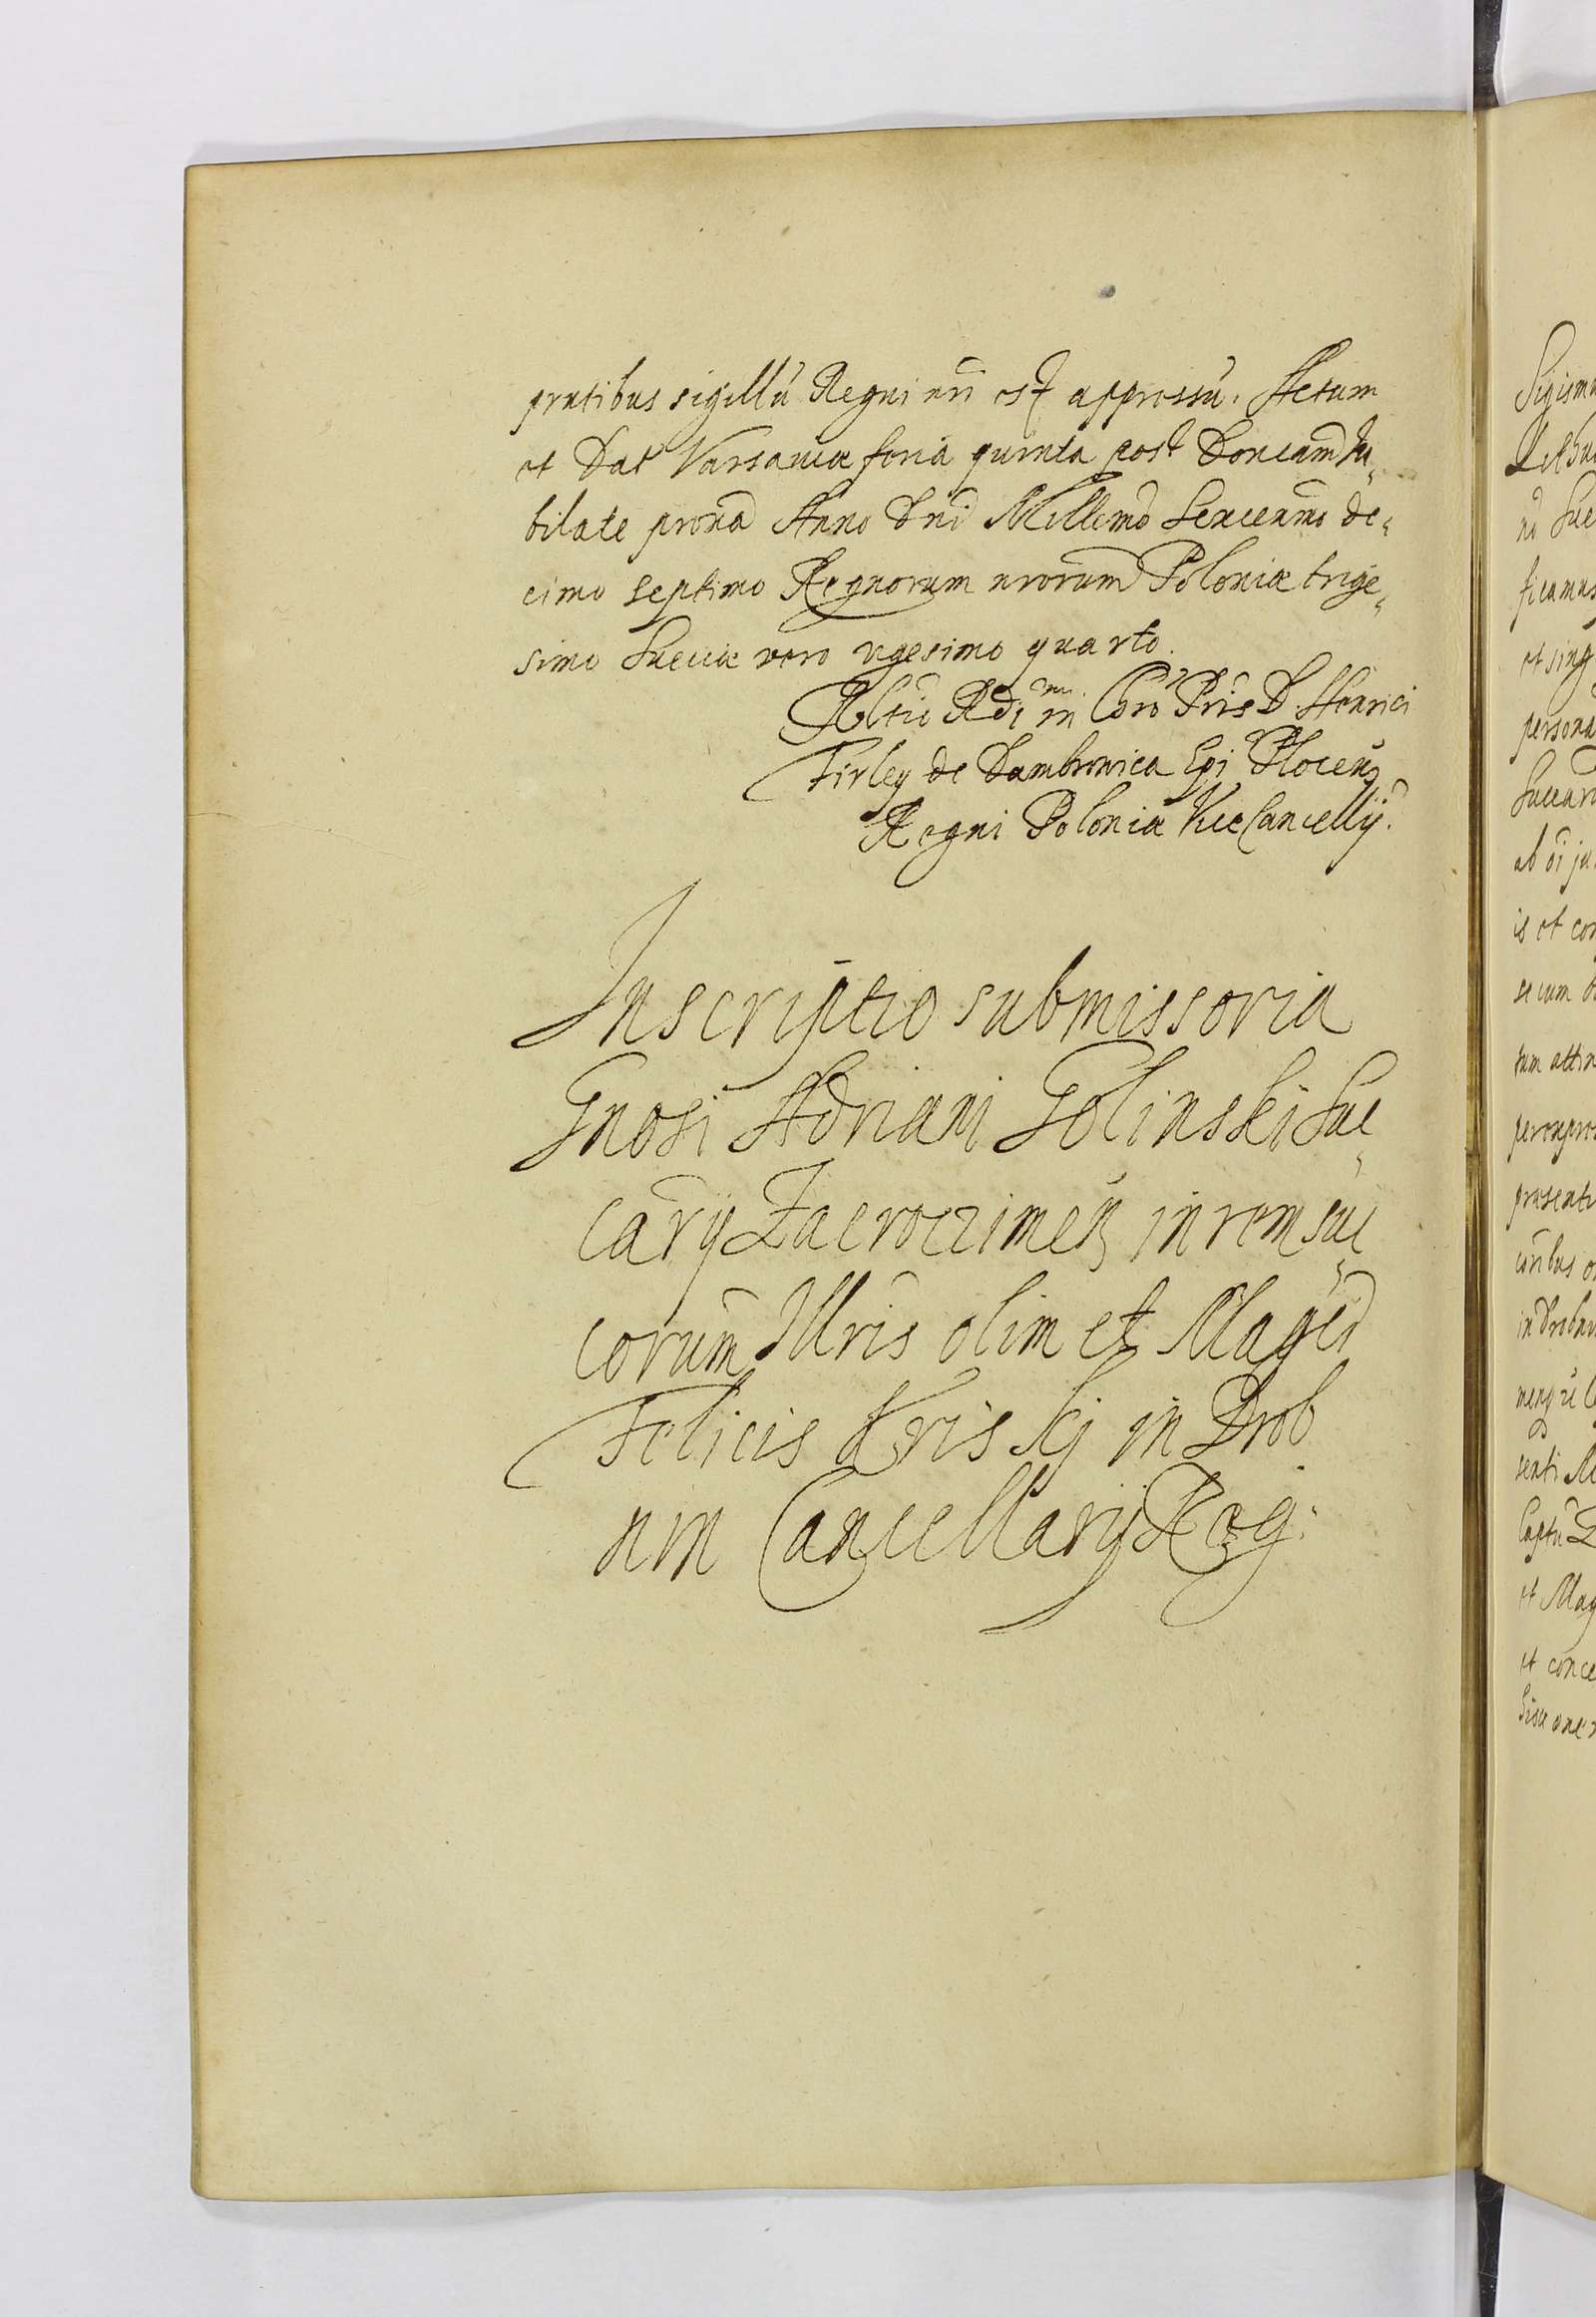 pntibus sigillū Regni nri est appressū. Actum
et Dat Varsaviæ feria quinta post Doncam Ju„
bilate proxa Anno Dni Millemo Sexcenmo de„
cimo septimo Regnorum nrorum Poloniæ trige„
simo Sueciæ vero vgesimo quarto.
Rltio Rdi in Chro Pris D. Henrici
Firley de Dambrowica Epi Plocen
Regni Poloniæ ViceCancellij.
Inscriptio submissoria
Gnosi Adriani Golinski Suc„
carij Zacroczimen in rem suc„
corum Illris olim et Magci
Felicis Kriskj in Drob
nin Cancellarij Reg:
Sigism
Lithu
no Sue
ficamus
et sing
persona
Succar
ab oi ju
is et con
se cum
tum attin
perexpres
presenti
in Drobni
senti
et Mag
et conce